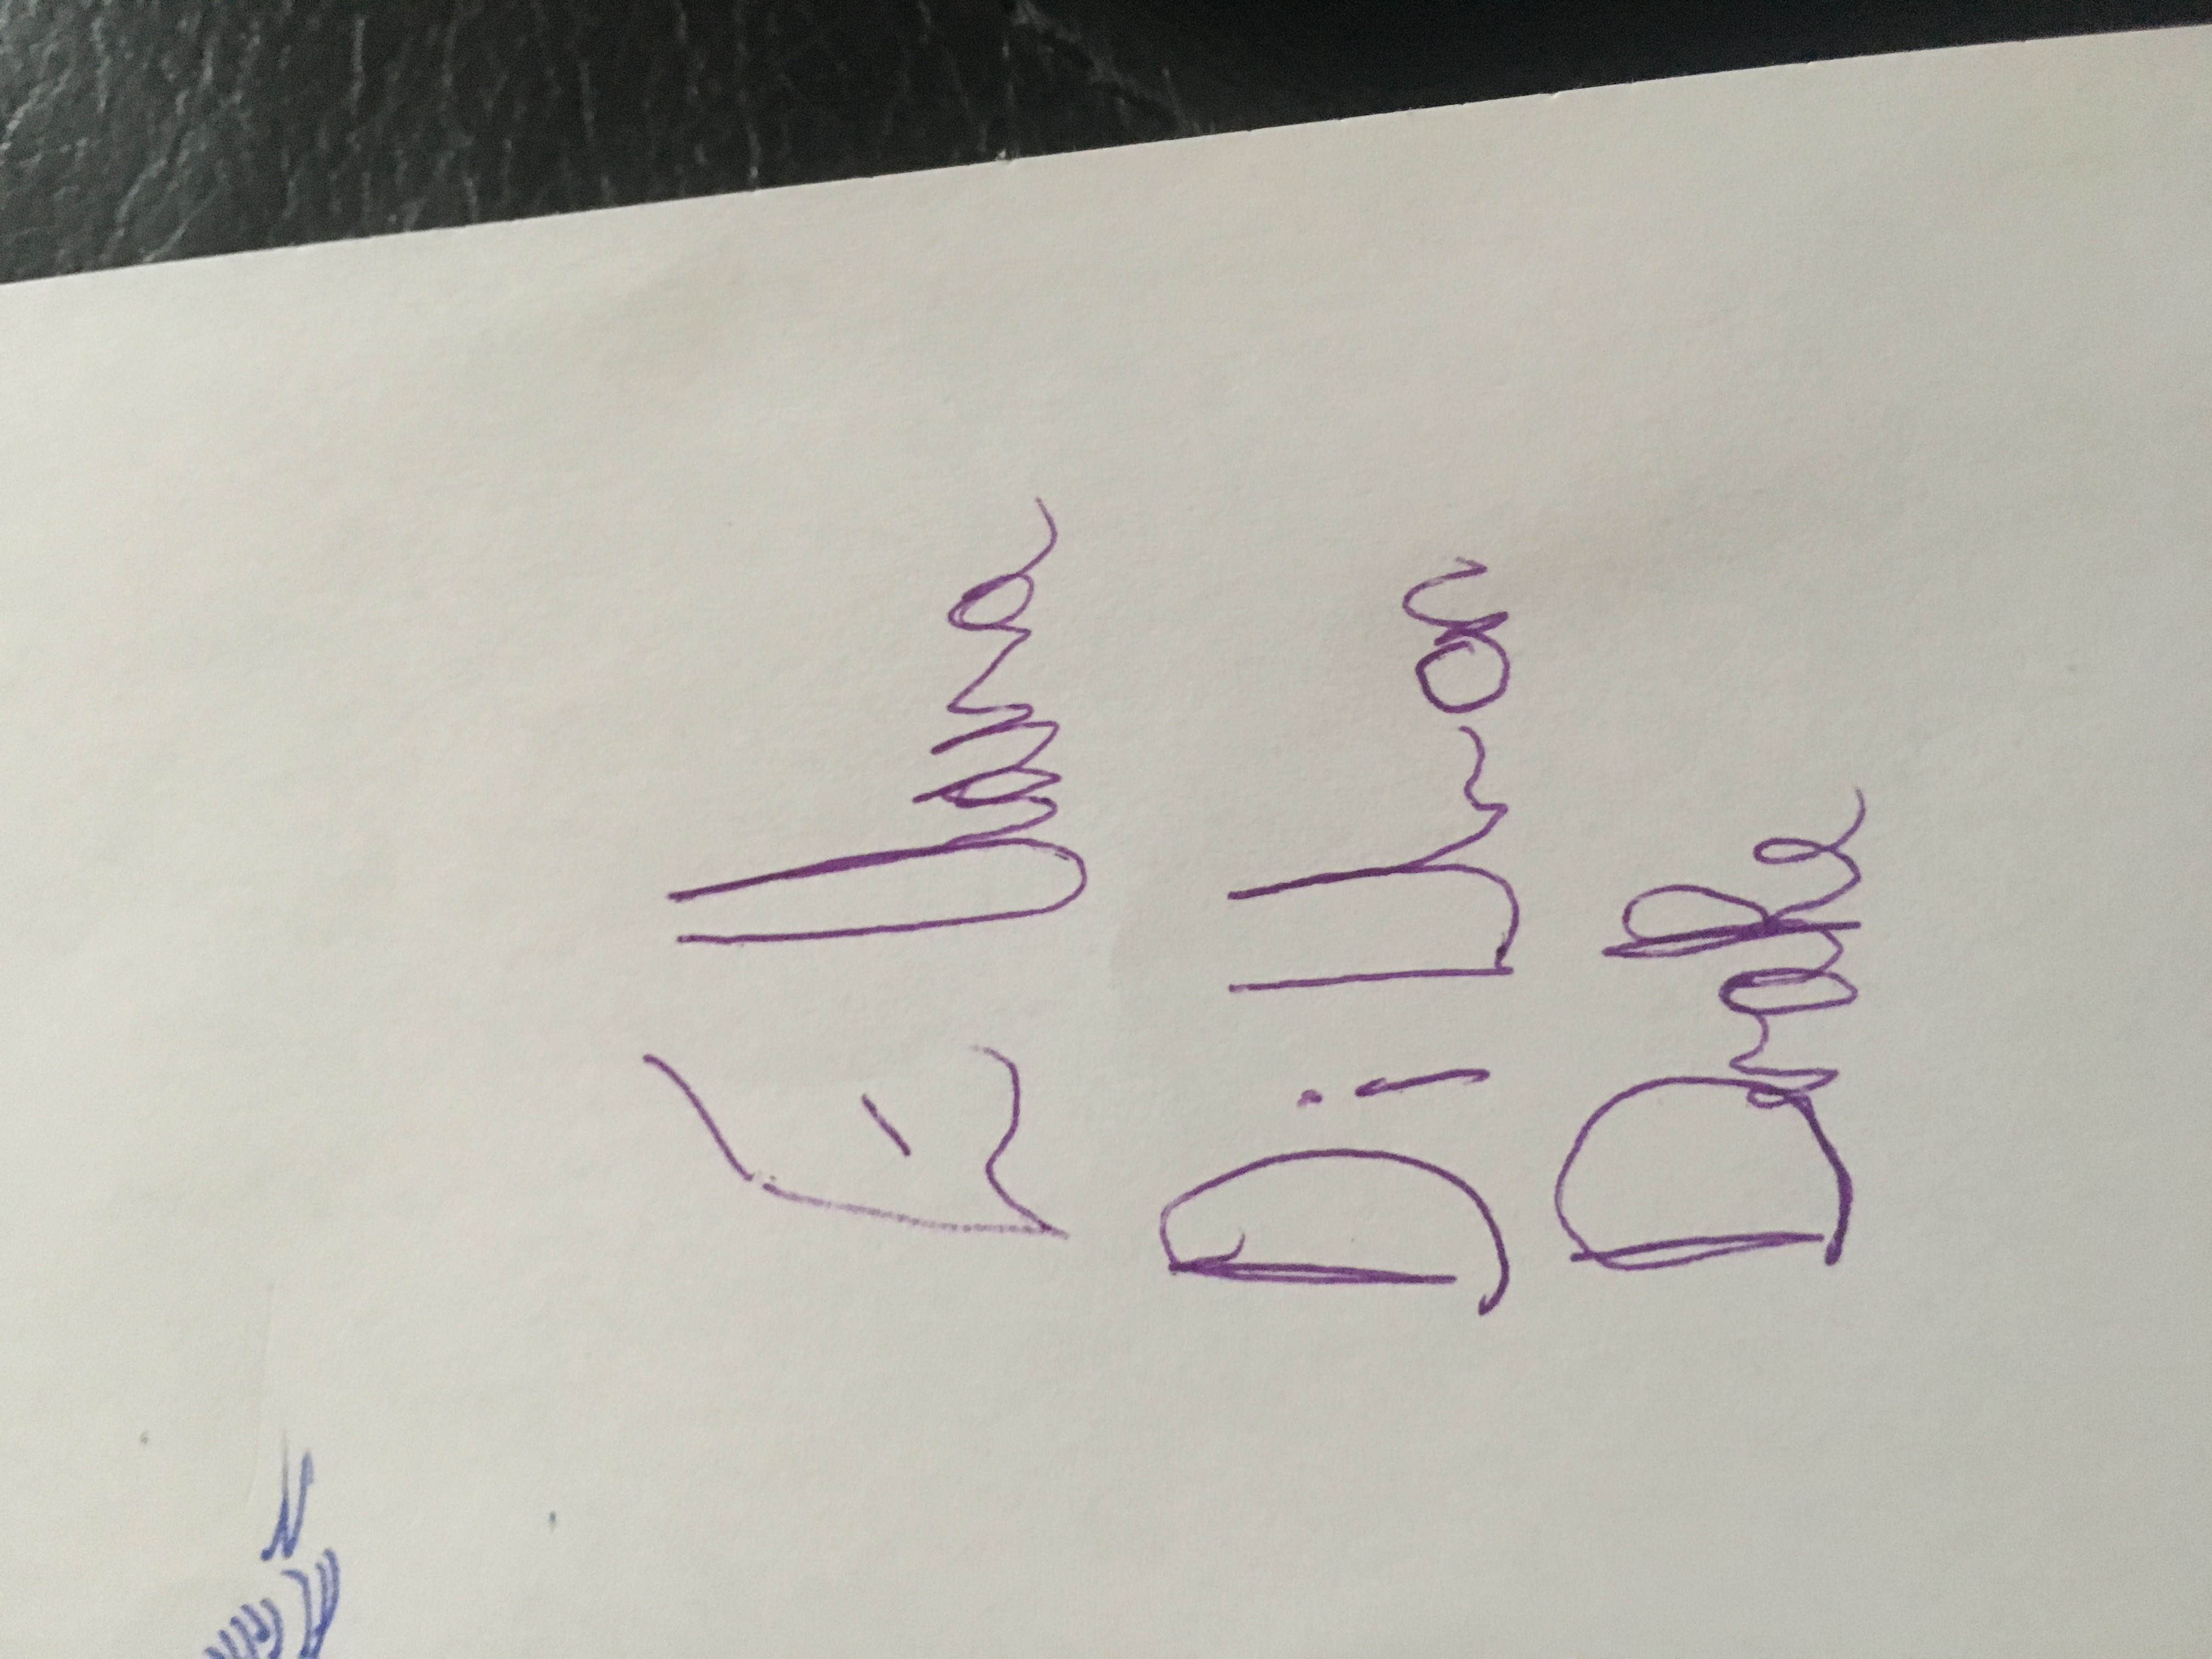 Elliana
Dillon
Drake